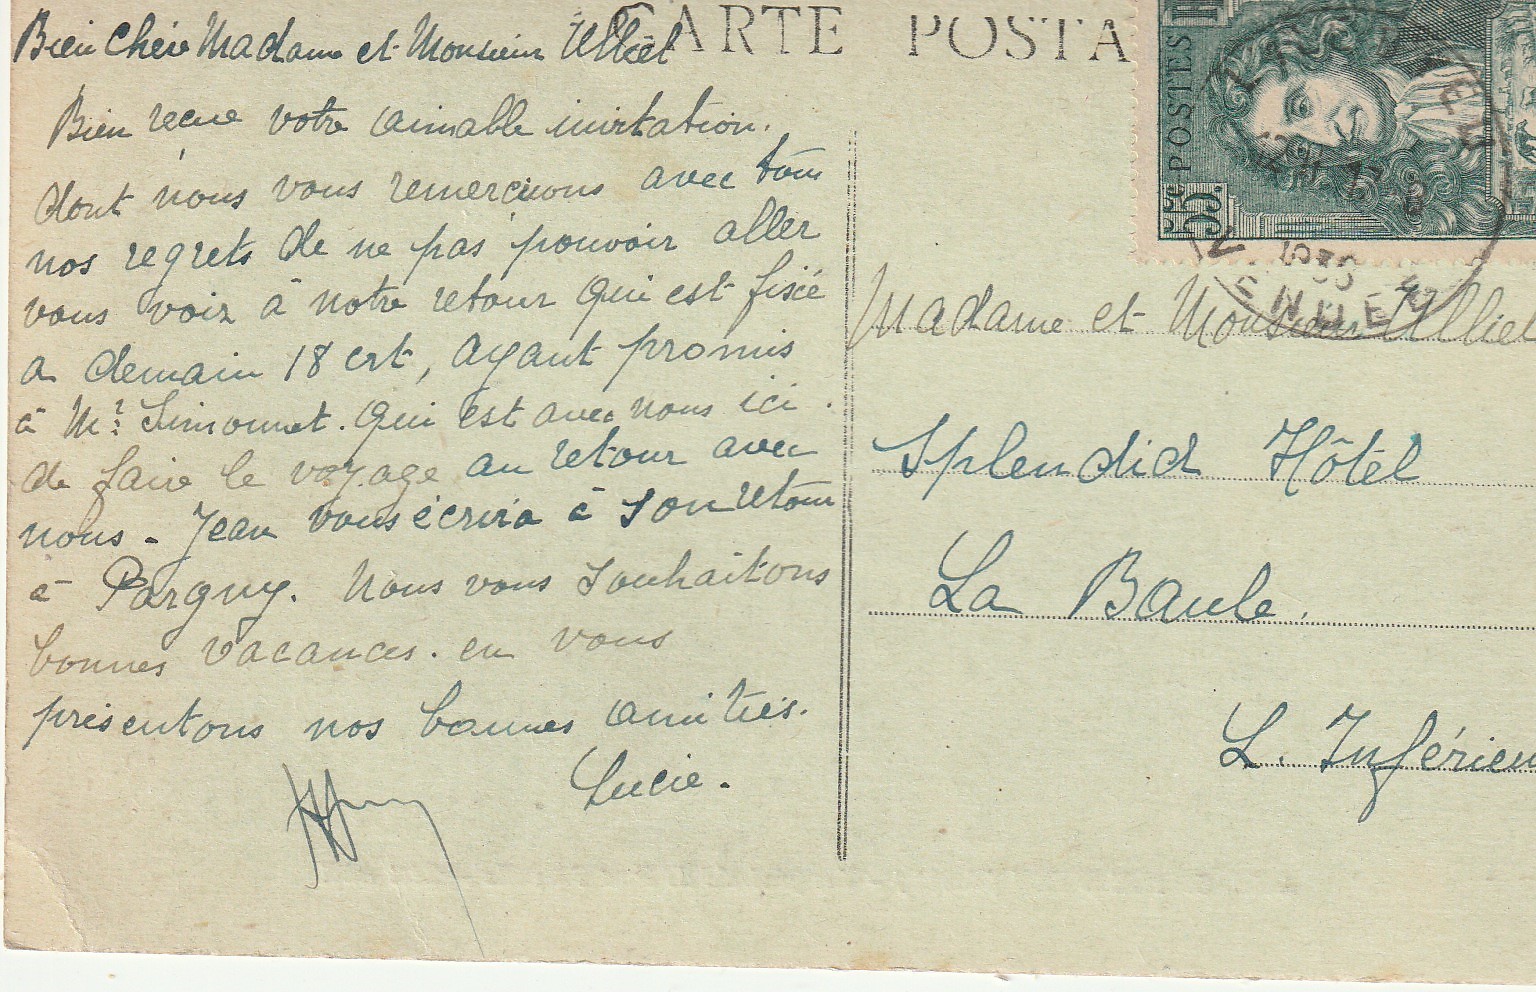 CARTE POSTA
Bien Chère Madame et Monsieur Ulliel
Bien reçue votre aimable invitation.
dont nous vous remercions avec tous
nos regrets de ne pas pouvoir aller
vous voir à notre retour qui est fixé
a demain 18 crt, ayant promis
à Mr Simonnet. qui est avec nous ici.
de faire le voyage au retour avec
nous - Jean vous écrira à son retour
à Pargny. Nous vous souhaitons
bonnes vacances. en vous
présentons nos bonnes amitiés.
Lucie.
POSTES
55c
1936
VENDÉE
Madame et Monsieur Ulliel
Splendid Hôtel
La Baule.
L. Inférieu